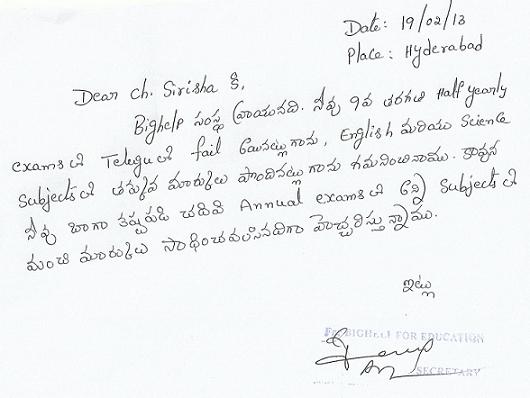 Date: 19/02/13
Place: Hyderabad
Dear Ch. Sirisha కి,
Bighelp సంస్థ వ్రాయునది. నీవు 9వ తరగతి Half yearly
exams లో Telugu లో fail అయినట్లుగాను, English మరియు Science
Subjects లో తక్కువ మార్కులు పొందినట్లుగాను గమనించినాము. కావున
నీవు బాగా కష్టపడి చదివి Annual exams లో అన్ని Subjects లో
మంచి మార్కులు సాధించవలసినదిగా హెచ్చరిస్తున్నాము.
ఇట్లు
For BIGHELP FOR EDUCATION
SECRETARY